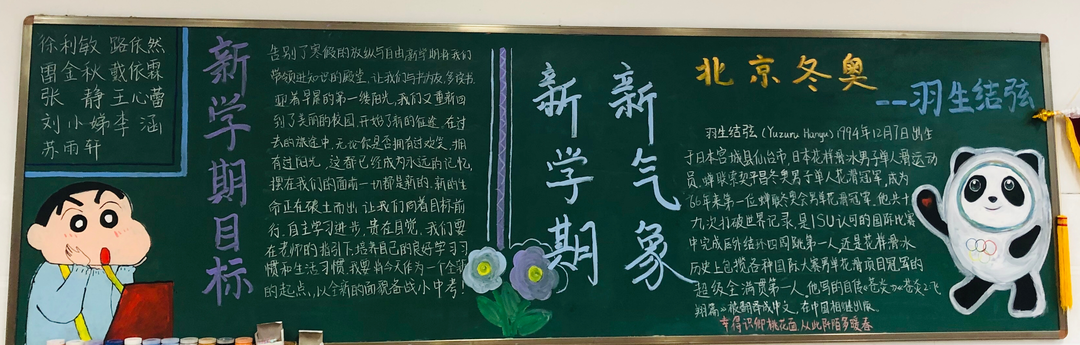 徐利敏 路依然
国金秋 戴依霖
张 静 王心蕾
刘小娣 李涵
苏雨轩
新学期目标
告别了寒假的放纵与自由,新学期将我们
带领进知识的殿堂,让我们与书为友,多读书.
迎着早晨的第一缕阳光,我们又重新回
到了美丽的校园,开始了新的征途,在过
去的旅途中,无论你是否拥有过欢笑,拥
有过阳光,这都已经成为永远的记忆,
摆在我们的面前一切都是新的,新的生
命正在破土而出,让我们向着目标前
行.自主学习进步,贵在自觉,我们要
在老师的指引下,培养自己的良好学习习
惯和生活习惯,我要将今天作为一个全新
的起点,以全新的面貌备战小中考!
新学期
新气象
北京冬奥
--羽生结弦
羽生结弦(Yuzuru Hanyu)1994年12月7日出生
于日本宫城县仙台市,日本花样滑冰男子单人滑运动
员,蝉联索契平昌冬奥男子单人花滑冠军,成为
66年来第一位蝉联冬奥会男单花滑冠军,他共十
九次打破世界记录,是ISU认可的国际比赛
中完成后外结环四周跳第一人,还是花样滑冰
历史上包揽各种国际大赛男单花滑项目冠军的
超级全满贯第一人,他写的自传《苍炎》《苍炎2:飞
翔篇》被翻译成中文,在中国相继出版.
幸得识卿桃花面,从此阡陌多暖春